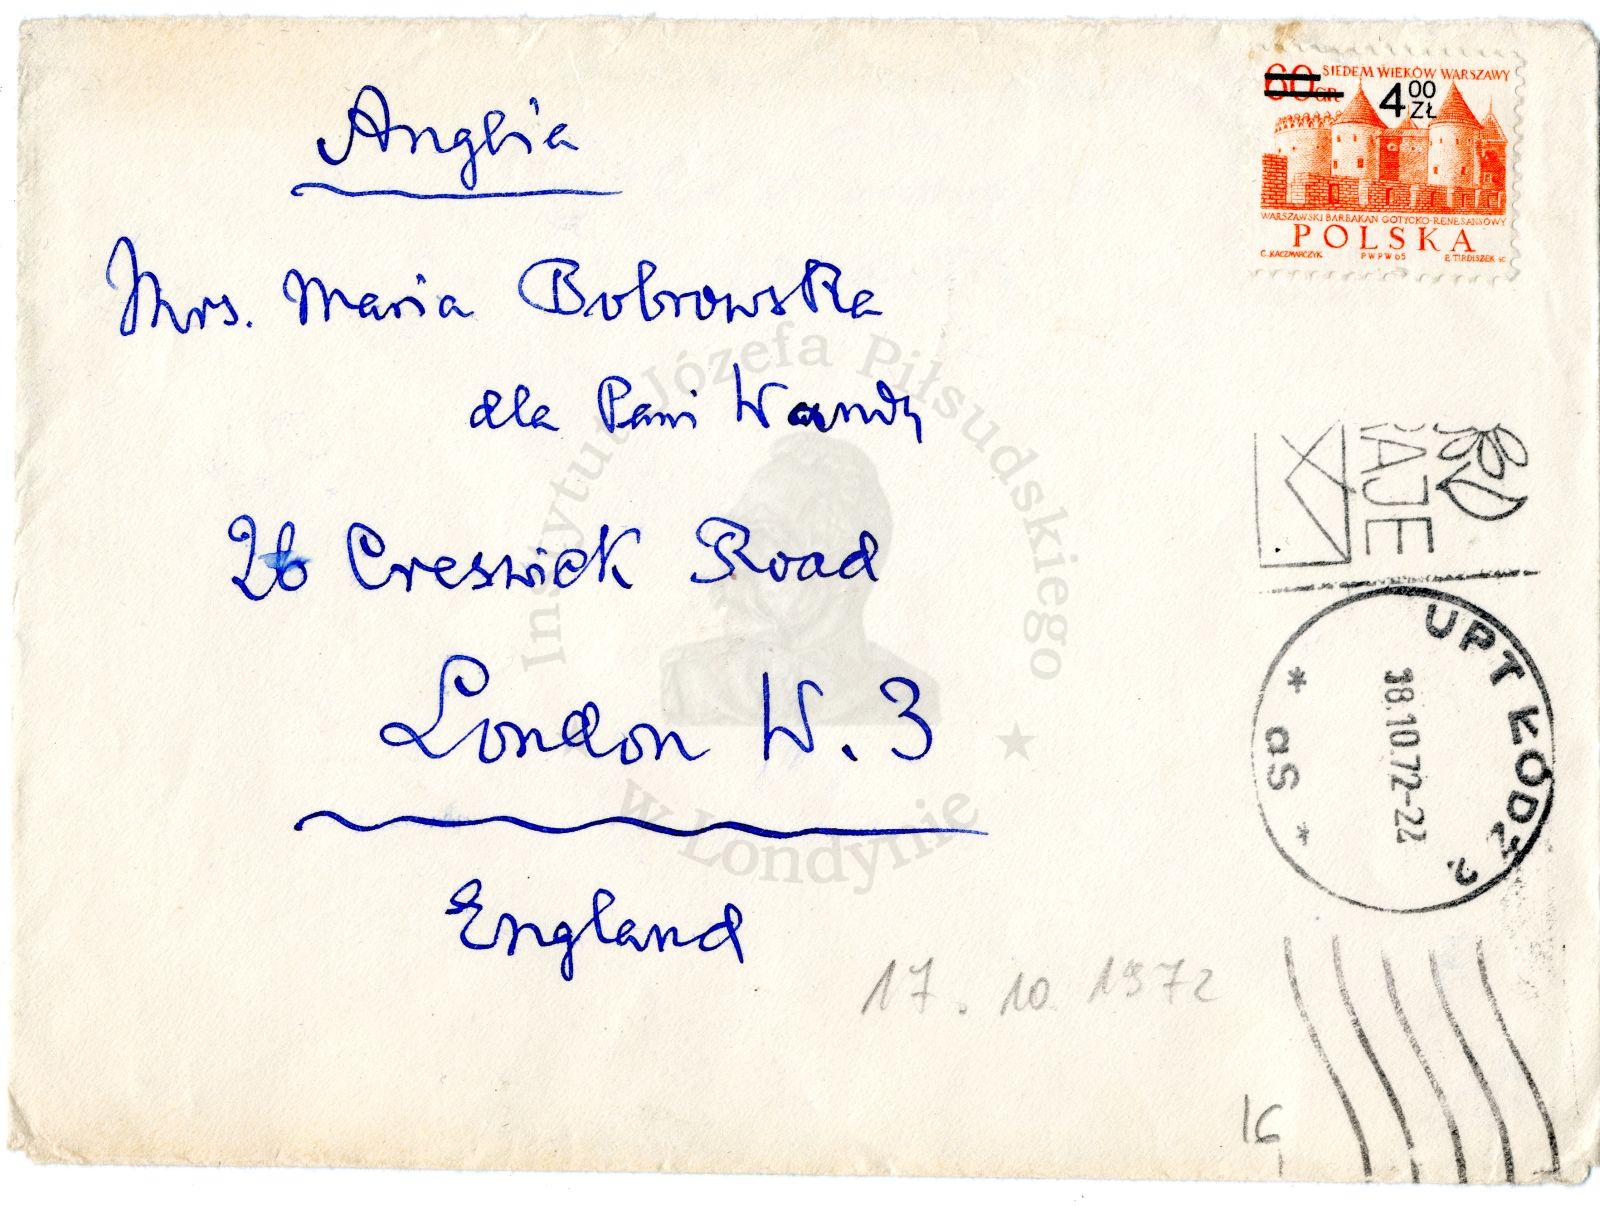 Anglia
60 GR SIEDEM WIEKÓW WARSZAWY
4 00 ZŁ
WARSZAWSKI BARBAKAN GOTYCKO-RENESANSOWY
POLSKA
C. KACZMARCZYK PWPW 65 E. TIRDISZEK SC
Mrs. Maria Bobrowska
dla Pani Wandy
26 Creswick Road
London W. 3
England
17. 10 1972
16
AJE
UPT ŁÓDŹ 2
18.10.72-22
* as *
Instytut Józefa Piłsudskiego
w Londynie